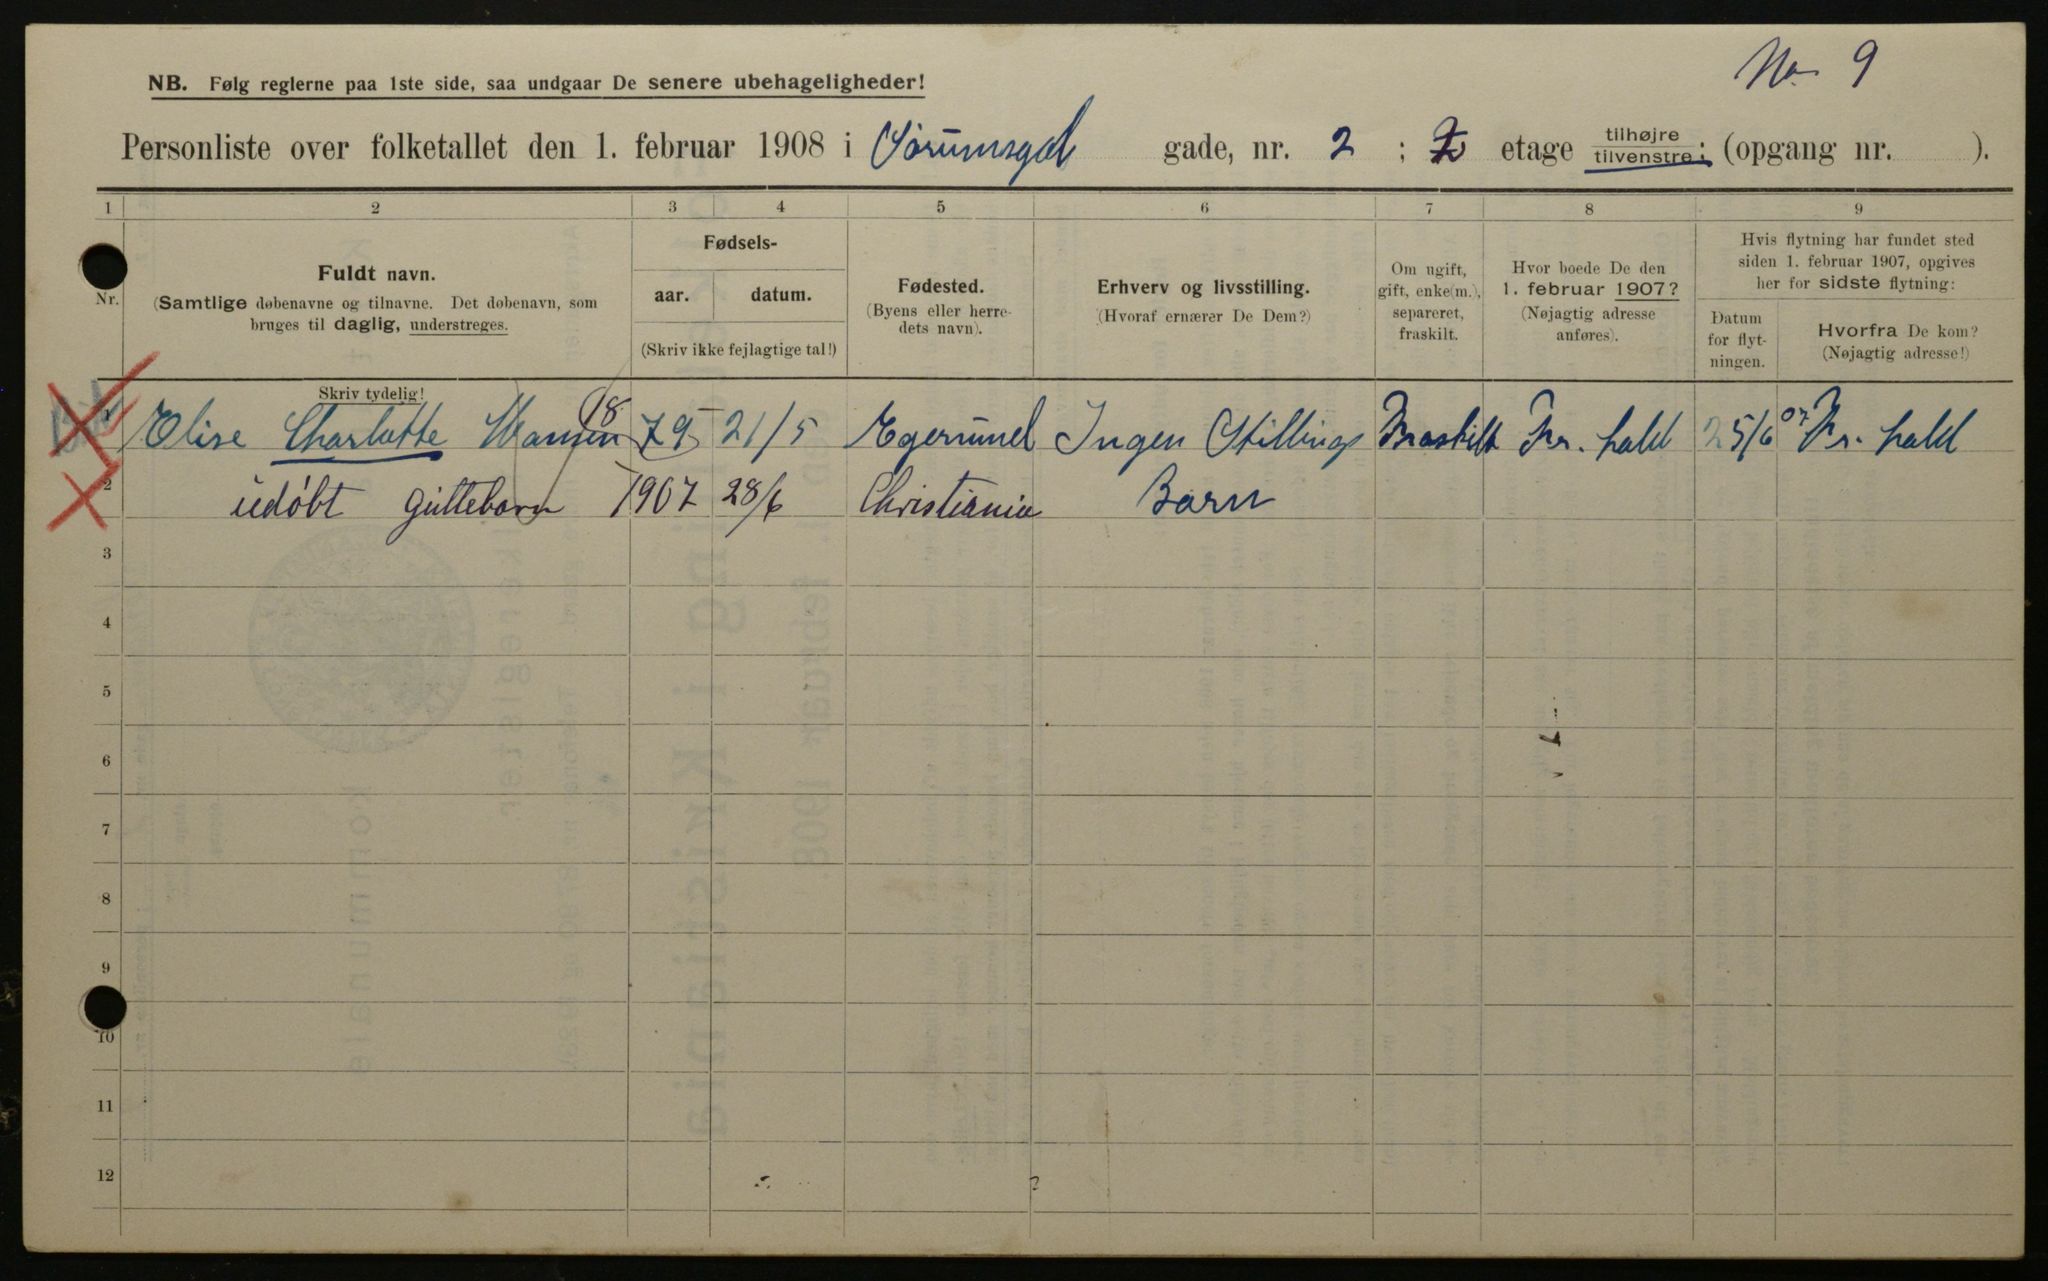 No 9
NB. Følg reglerne paa 1ste side, saa undgaar De senere ubehageligheder!
Personliste over folketallet den 1. februar 1908 i Sørumsgd gade, nr. 2 ; etage tilhøjre tilvenstre; (opgang nr. ).
1 2 3 4 5 6 7 8 9
Nr.
Fuldt navn.
(Samtlige døbenavne og tilnavne. Det døbenavn, som
bruges til daglig, understreges.
Skriv tydelig!
Fødsels-
aar. datum.
(Skriv ikke fejlagtige tal!)
Fødested.
(Byens eller herre-
dets navn).
Erhverv og livsstilling.
(Hvoraf ernærer De Dem?)
Om ugift,
gift, enke(m.),
separeret,
fraskilt.
Hvor boede De den
1. februar 1907?
(Nøjagtig adresse
anføres).
Hvis flytning har fundet sted
siden 1. februar 1907, opgives
her for sidste flytning:
Datum
for flyt-
ningen.
Hvorfra De kom?
(Nøjagtig adresse!)
1 Elise Charlotte Hansen 18 79 21/5 Egersund Ingen Stilling Fraskilt Fr. hald 25/6 07 Fr. hald
2 udøbt guttebarn 1907 28/6 Christiania Barn
3
4
5
6
7
8
9
10
11
12